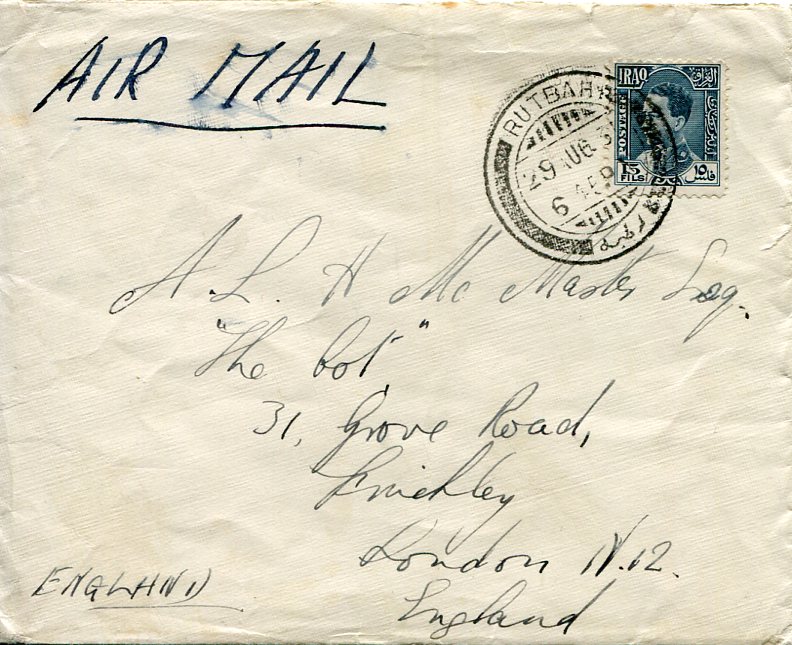 AIR MAIL
IRAQ
العراق
POSTAGE
15
FILS
١٥
فلس
RUTBAH
29 AUG 3
6
A. L. H Mc Master Esq.
"The Cot"
31, Grove Road,
Finchley
London N.12.
England
ENGLAND